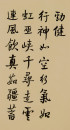 勁健
行神如空行氣如
虹巫峽千尋走雲
連風飲真茹彊蓄